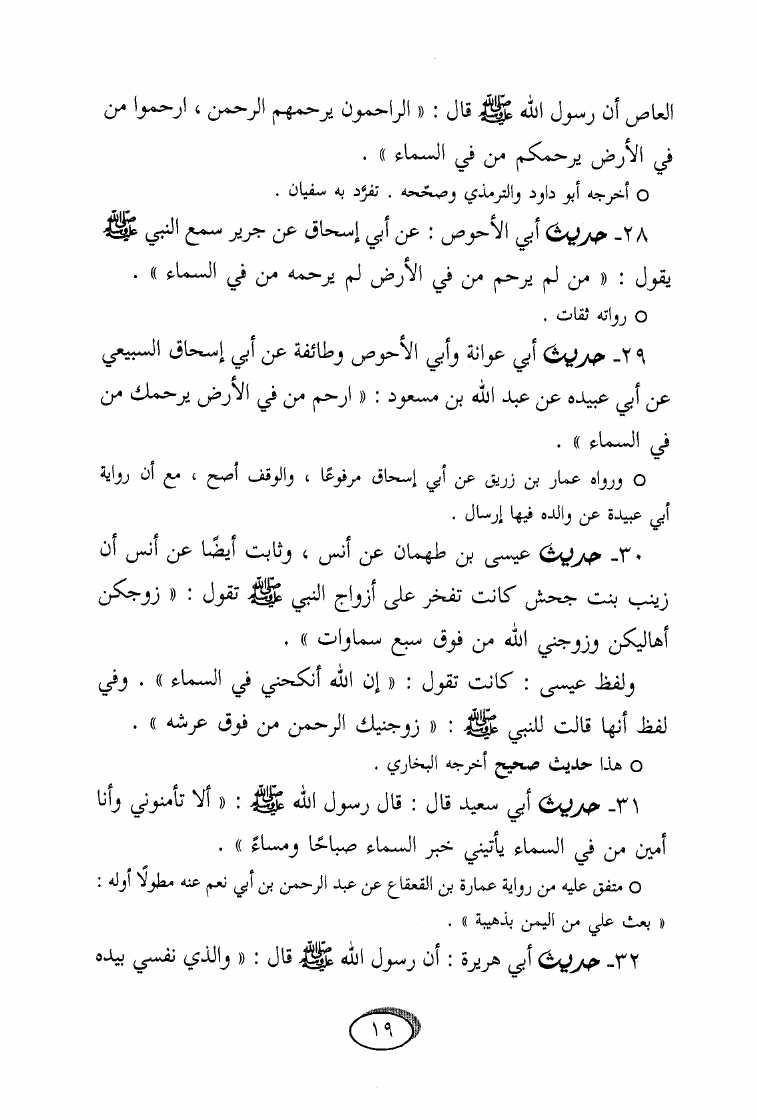 العاص أن رسول الله ﷺ قال : « الراحمون يرحمهم الرحمن ، ارحموا من
في الأرض يرحمكم من في السماء » .
○ أخرجه أبو داود والترمذي وصحّحه . تفرَّد به سفيان .
٢٨ـ حديث أبي الأحوص : عن أبي إسحاق عن جرير سمع النبي ﷺ
يقول : « من لم يرحم من في الأرض لم يرحمه من في السماء » .
○ رواته ثقات .
٢٩ـ حديث أبي عوانة وأبي الأحوص وطائفة عن أبي إسحاق السبيعي
عن أبي عبيده عن عبد الله بن مسعود : « ارحم من في الأرض يرحمك من
في السماء » .
○ ورواه عمار بن زريق عن أبي إسحاق مرفوعًا ، والوقف أصح ، مع أن رواية
أبي عبيدة عن والده فيها إرسال .
٣٠ـ حديث عيسى بن طهمان عن أنس ، وثابت أيضًا عن أنس أن
زينب بنت جحش كانت تفخر على أزواج النبي ﷺ تقول : « زوجكن
أهاليكن وزوجني الله من فوق سبع سماوات » .
ولفظ عيسى : كانت تقول : « إن الله أنكحني في السماء » . وفي
لفظ أنها قالت للنبي ﷺ : « زوجنيك الرحمن من فوق عرشه » .
○ هذا حديث صحيح أخرجه البخاري .
٣١ـ حديث أبي سعيد قال : قال رسول الله ﷺ : « ألا تأمنوني وأنا
أمين من في السماء يأتيني خبر السماء صباحًا ومساءً » .
○ متفق عليه من رواية عمارة بن القعقاع عن عبد الرحمن بن أبي نعم عنه مطولًا أوله :
« بعث علي من اليمن بذهيبة » .
٣٢ـ حديث أبي هريرة : أن رسول الله ﷺ قال : « والذي نفسي بيده
١٩